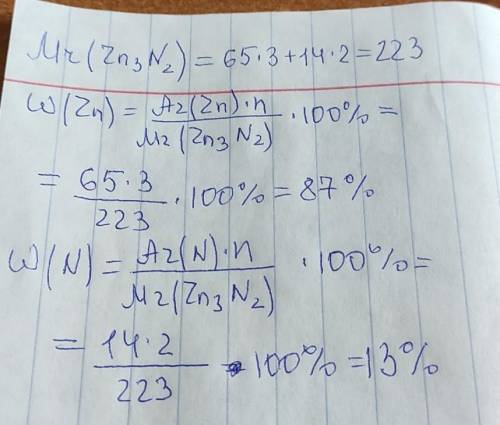 Mr(Zn₃N₂) = 65·3+14·2=223
ω(Zn) = Ar(Zn)·n / Mr(Zn₃N₂) · 100% =
= 65·3 / 223 · 100% = 87%
ω(N) = Ar(N)·n / Mr(Zn₃N₂) · 100% =
= 14·2 / 223 · 100% = 13%